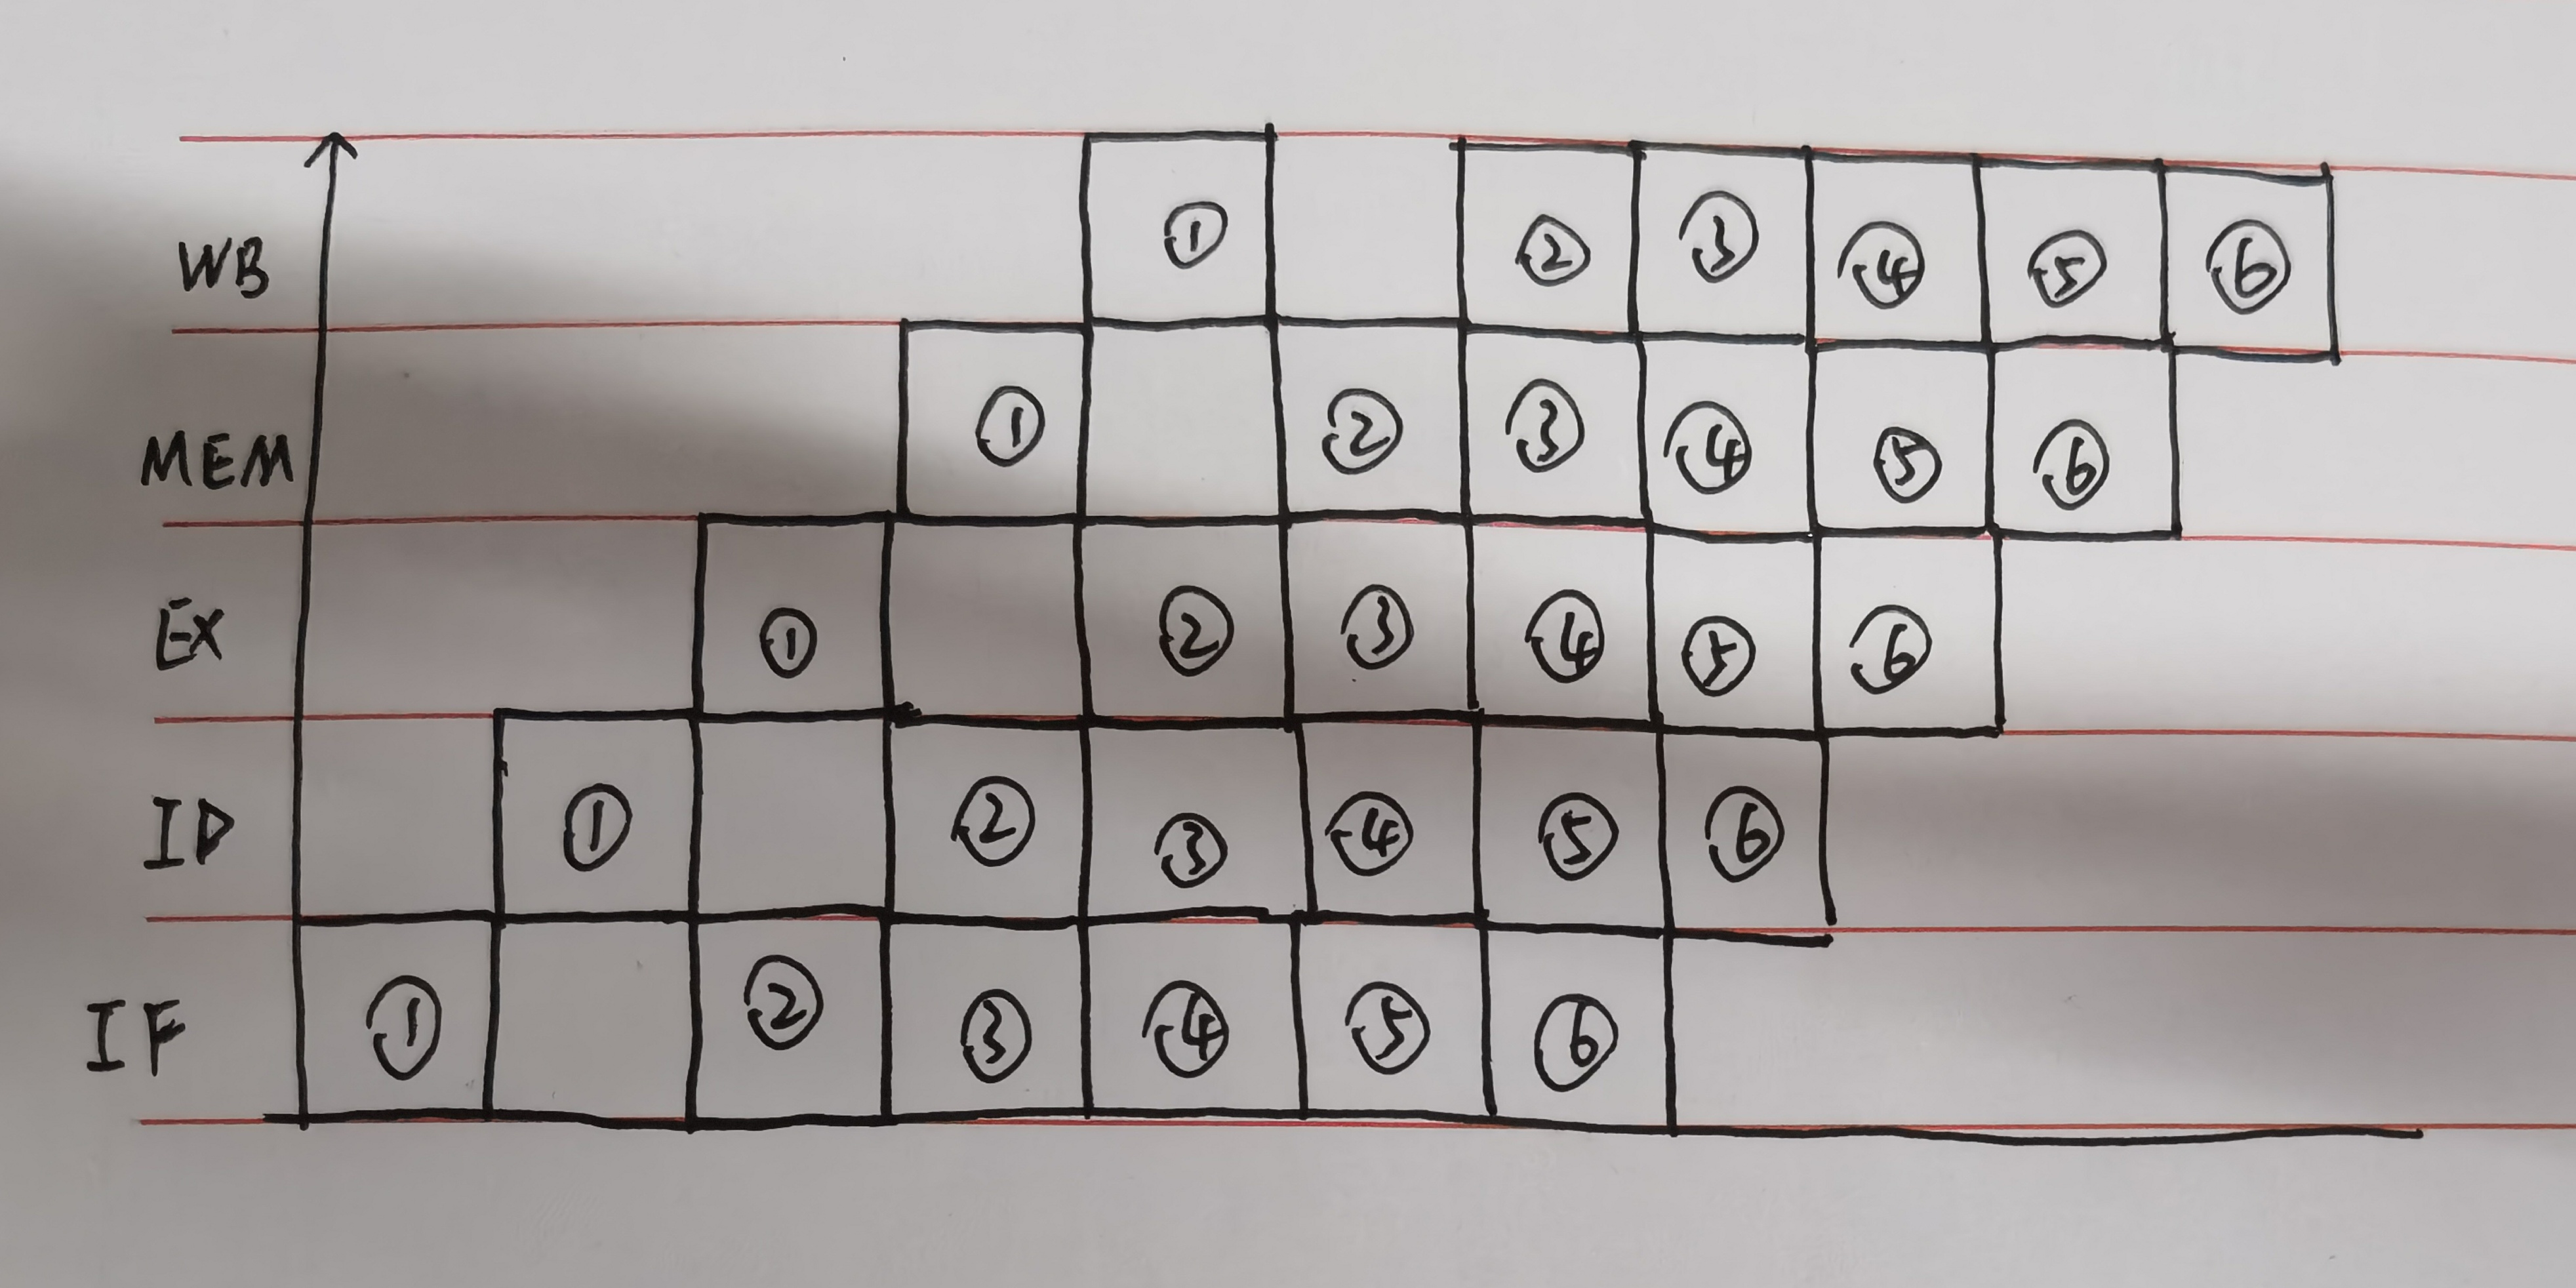 WB ① ② ③ ④ ⑤ ⑥
MEM ① ② ③ ④ ⑤ ⑥
EX ① ② ③ ④ ⑤ ⑥
ID ① ② ③ ④ ⑤ ⑥
IF ① ② ③ ④ ⑤ ⑥